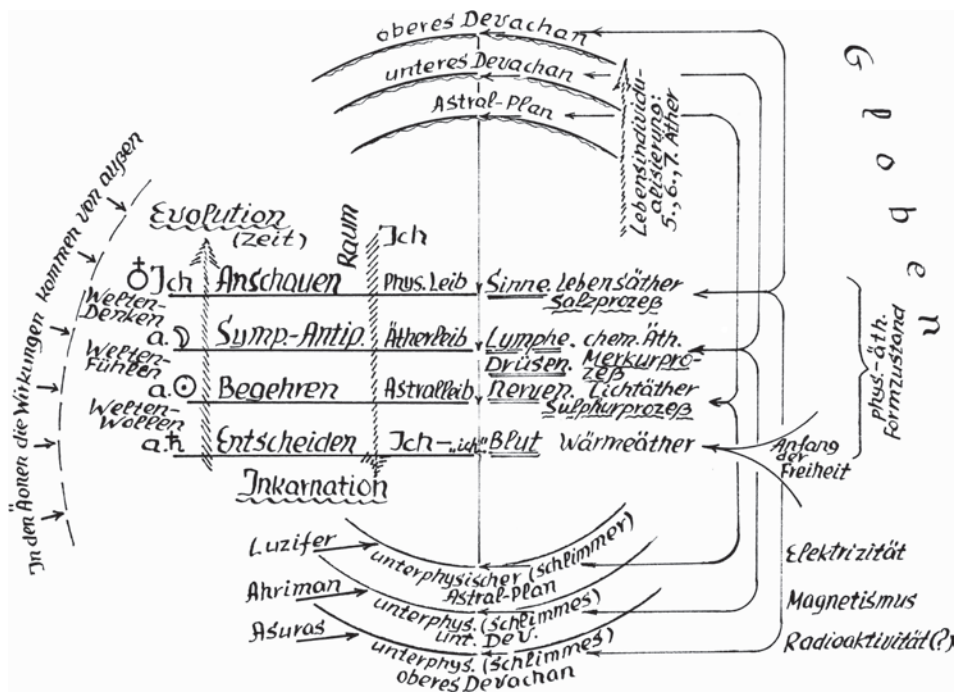 oberes Devachan
unteres Devachan
Astral-Plan
Globen
Lebensindividu-
alisierung:
5., 6., 7. Äther
In den Äonen die Wirkungen kommen von außen
Evolution
(Zeit)
Raum
Ich
♁ Ich Anschauen Phys. Leib Sinne. Lebensäther
Salzprozeß
Welten-
Denken
a. ☽ Symp.-Antip. Ätherleib Lymphe. chem. Äth.
Drüsen. Merkurpro-
zeß
Welten-
Fühlen
a. ☉ Begehren Astralleib Nerven. Lichtäther
Sulphurprozeß
Welten-
Wollen
a. ♄ Entscheiden Ich-„ich“ Blut Wärmeäther
Anfang
der
Freiheit
phys.-äth.
Formzustand
Inkarnation
Luzifer
unterphysischer (schlimmer)
Astral-Plan
Elektrizität
Ahriman
unterphys. (schlimmes)
unt. Dev.
Magnetismus
Asuras
unterphys. (schlimmes)
oberes Devachan
Radioaktivität (?)